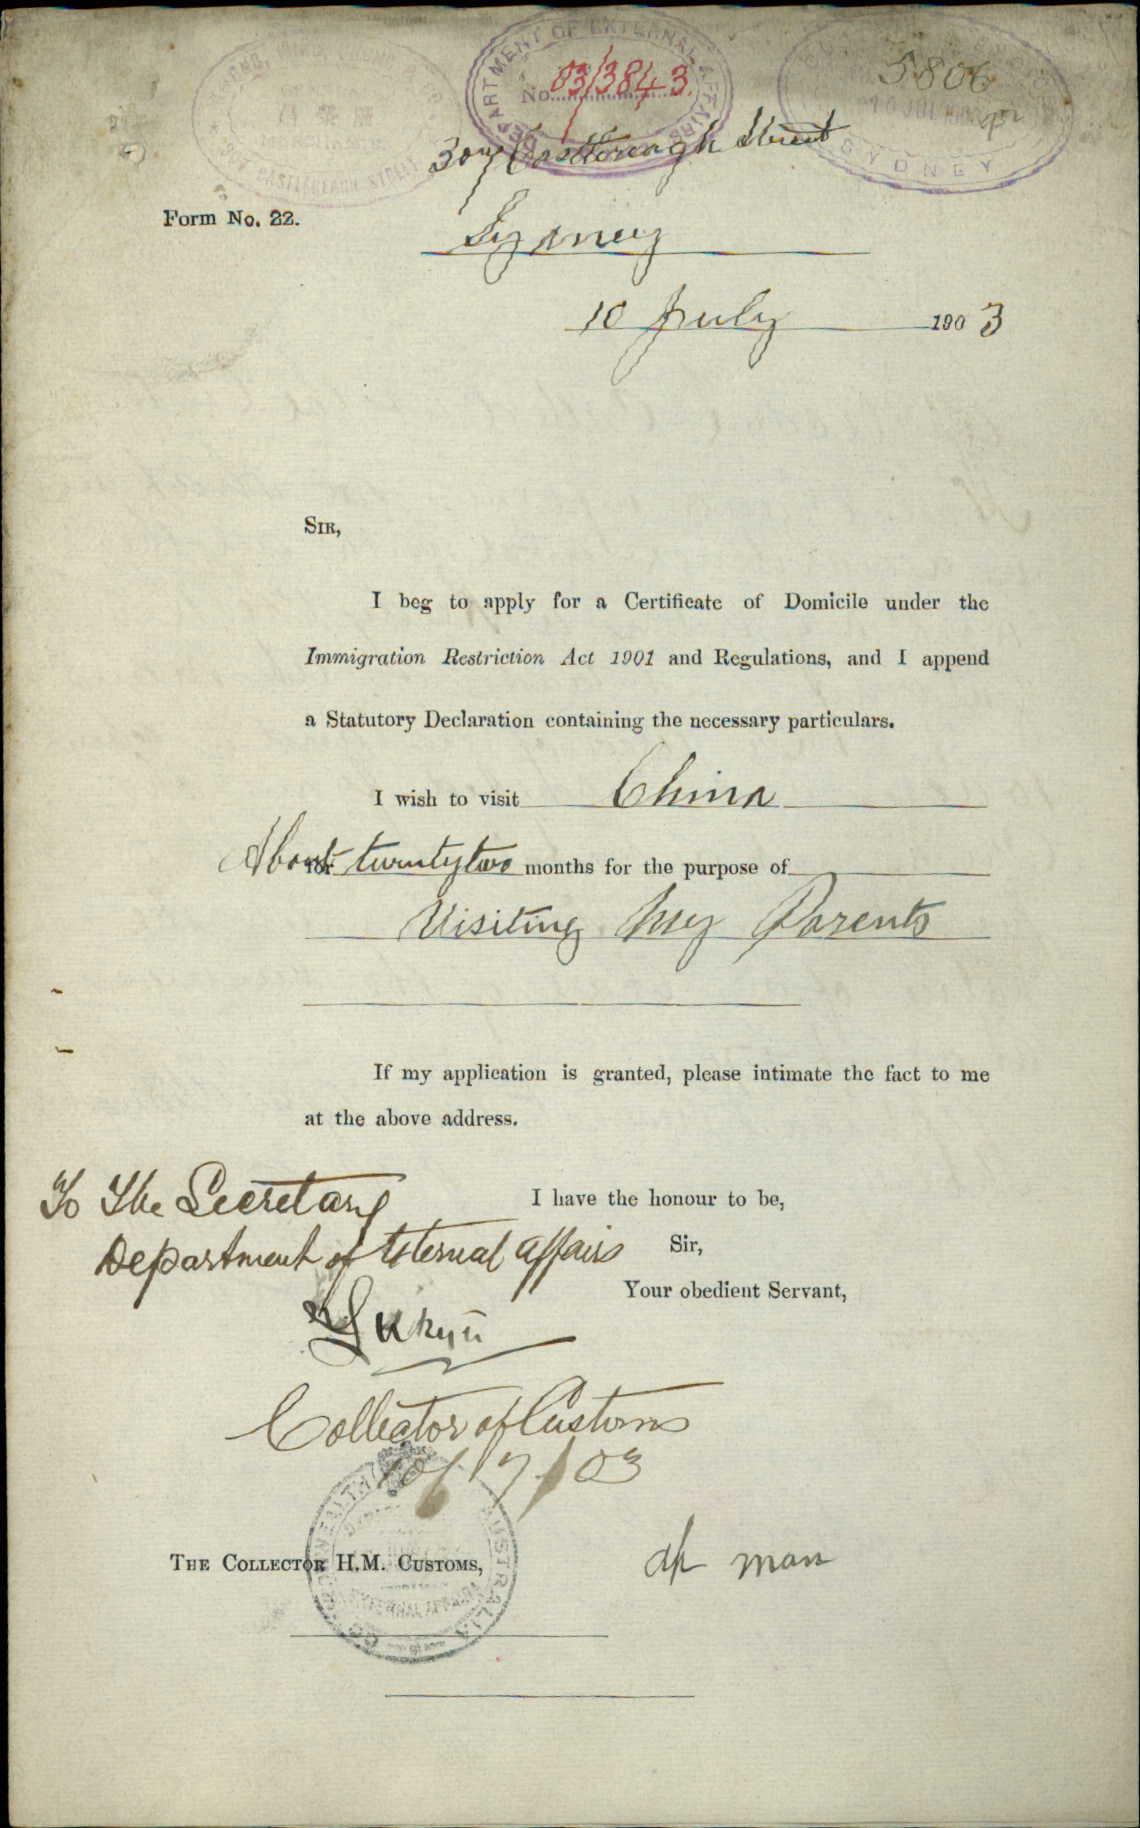 DEPARTMENT OF EXTERNAL AFFAIRS
No. 03/3843
5806
SYDNEY
CASTLEREAGH STREET
Castlereagh Street
Form No. 22.
Sydney
10 July 1903
SIR,
I beg to apply for a Certificate of Domicile under the
Immigration Restriction Act 1901 and Regulations, and I append
a Statutory Declaration containing the necessary particulars.
I wish to visit China
About for twentytwo months for the purpose of
Visiting My Parents
If my application is granted, please intimate the fact to me
at the above address.
To The Secretary
I have the honour to be,
Department of External Affairs
Sir,
Your obedient Servant,
Collector of Customs
10/7/03
COMMONWEALTH AUSTRALIA
EXTERNAL AFFAIRS
THE COLLECTOR H.M. CUSTOMS,
man